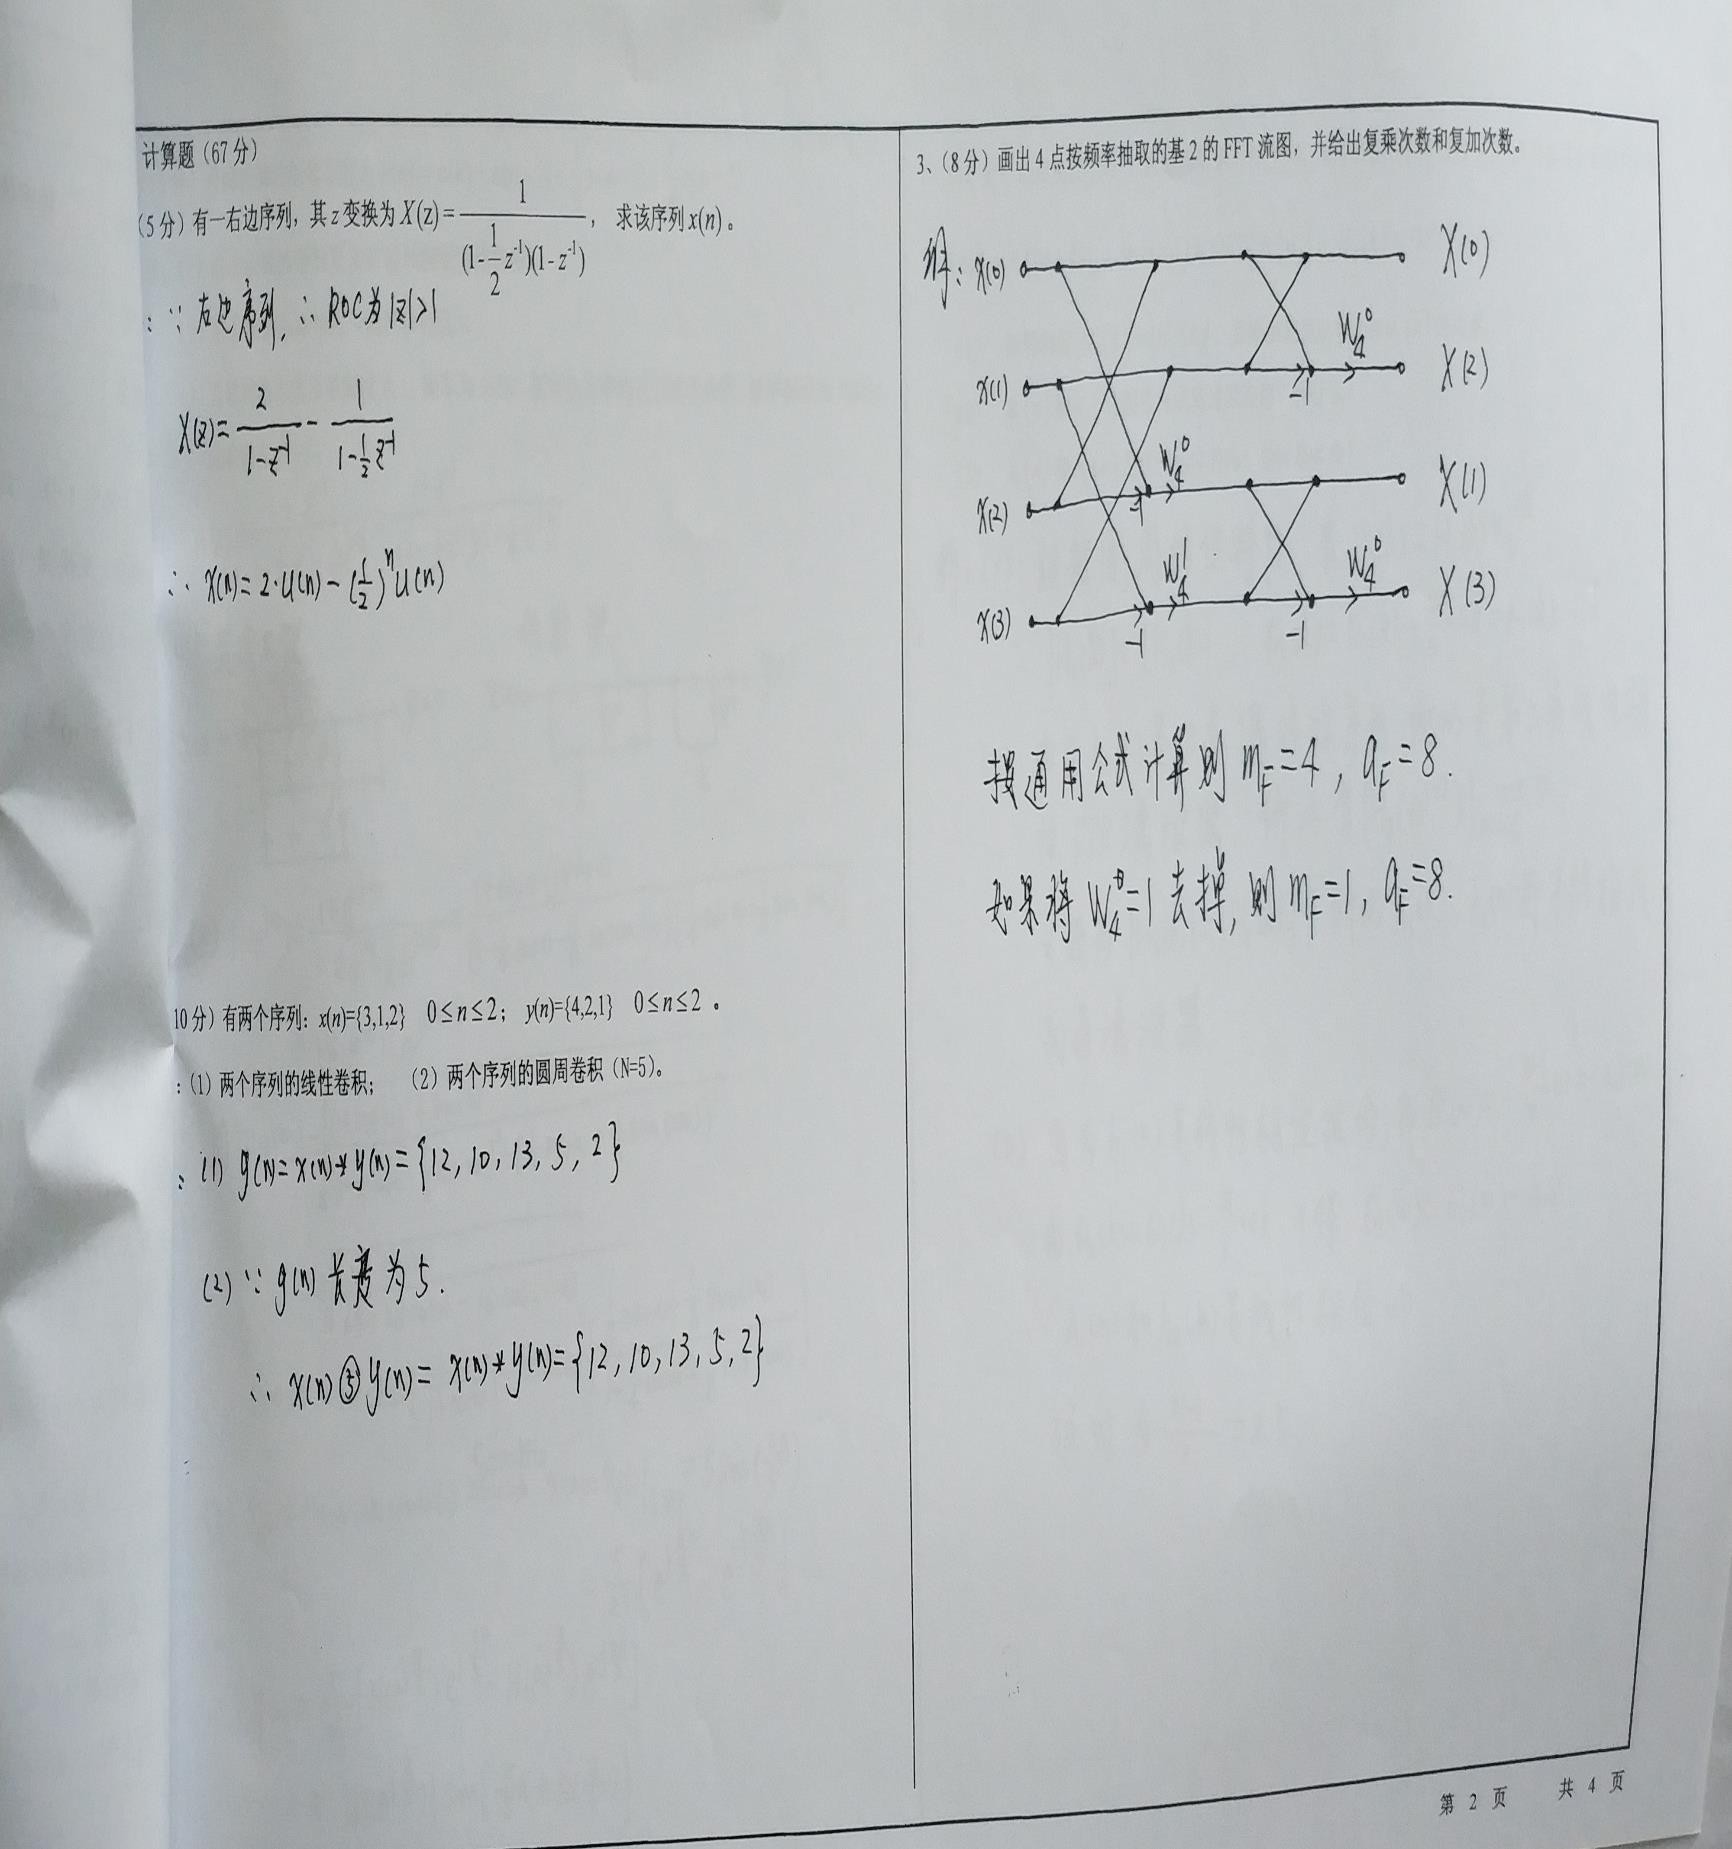 计算题（67分）
（5分）有一右边序列，其z变换为X(z)=1/((1-1/2 z⁻¹)(1-z⁻¹))， 求该序列x(n)。
: ∵ 右边序列, ∴ ROC为|z|>1
X(z)= 2/(1-z⁻¹) - 1/(1-1/2 z⁻¹)
∴ x(n)=2·u(n)-(1/2)ⁿu(n)
10分）有两个序列：x(n)={3,1,2} 0≤n≤2； y(n)={4,2,1} 0≤n≤2 。
:（1）两个序列的线性卷积； （2）两个序列的圆周卷积（N=5）。
: (1) g(n)=x(n)*y(n)={12, 10, 13, 5, 2}
(2) ∵ g(n) 长度为5.
∴ x(n)⑤y(n)= x(n)*y(n)={12, 10, 13, 5, 2}
3、（8分）画出4点按频率抽取的基2的FFT流图，并给出复乘次数和复加次数。
解: x(0) X(0)
W₄⁰
x(1) -1 X(2)
W₄⁰
x(2) -1 X(1)
W₄¹ W₄⁰
x(3) -1 -1 X(3)
按通用公式计算则 m_F=4, a_F=8.
如果将 W₄⁰=1 去掉, 则 m_F=1, a_F=8.
第 2 页 共 4 页